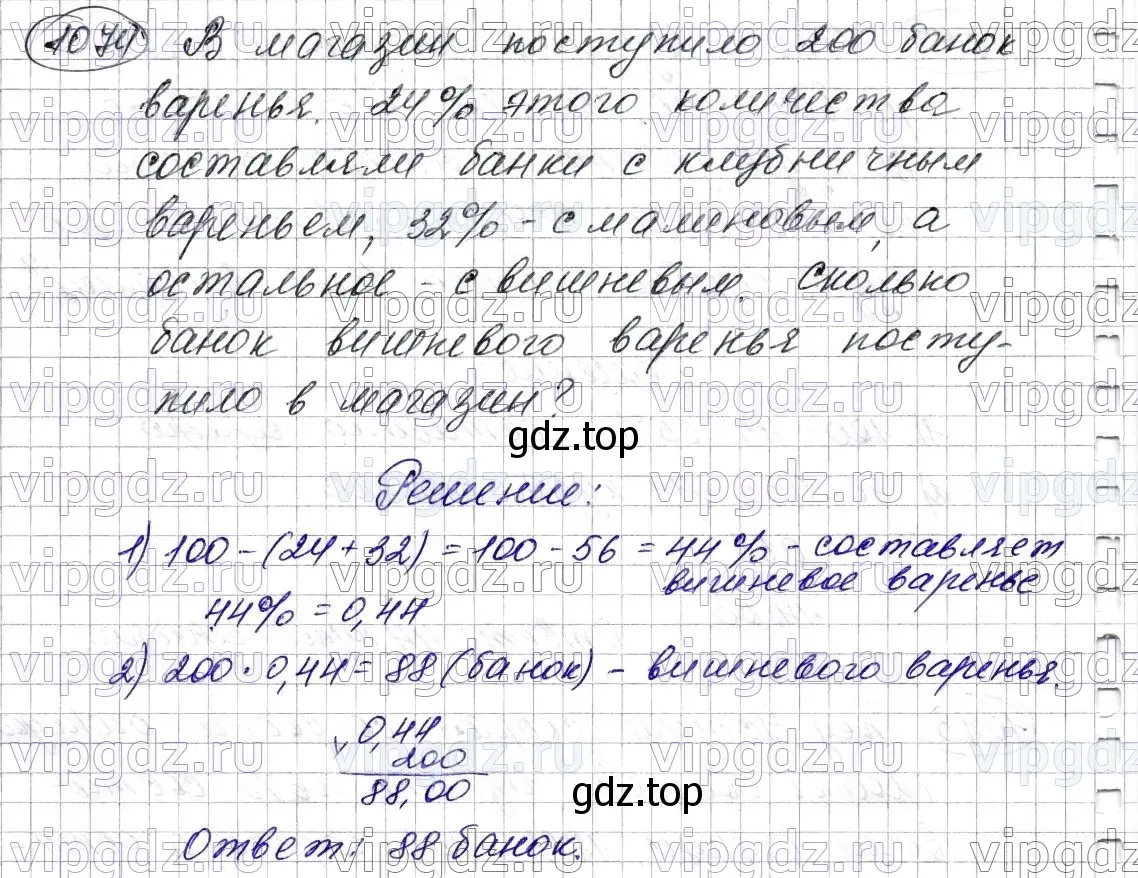 1074 В магазин поступило 200 банок
варенья. 24% этого количества
составляли банки с клубничным
вареньем, 32% - с малиновым, а
остальное - с вишневым. Сколько
банок вишневого варенья посту-
пило в магазин?
gdz.top
Решение:
1) 100 - (24 + 32) = 100 - 56 = 44% - составляет
вишневое варенье
44% = 0,44
2) 200 · 0,44 = 88 (банок) - вишневого варенья.
0,44
200
88,00
gdz.top
Ответ: 88 банок.